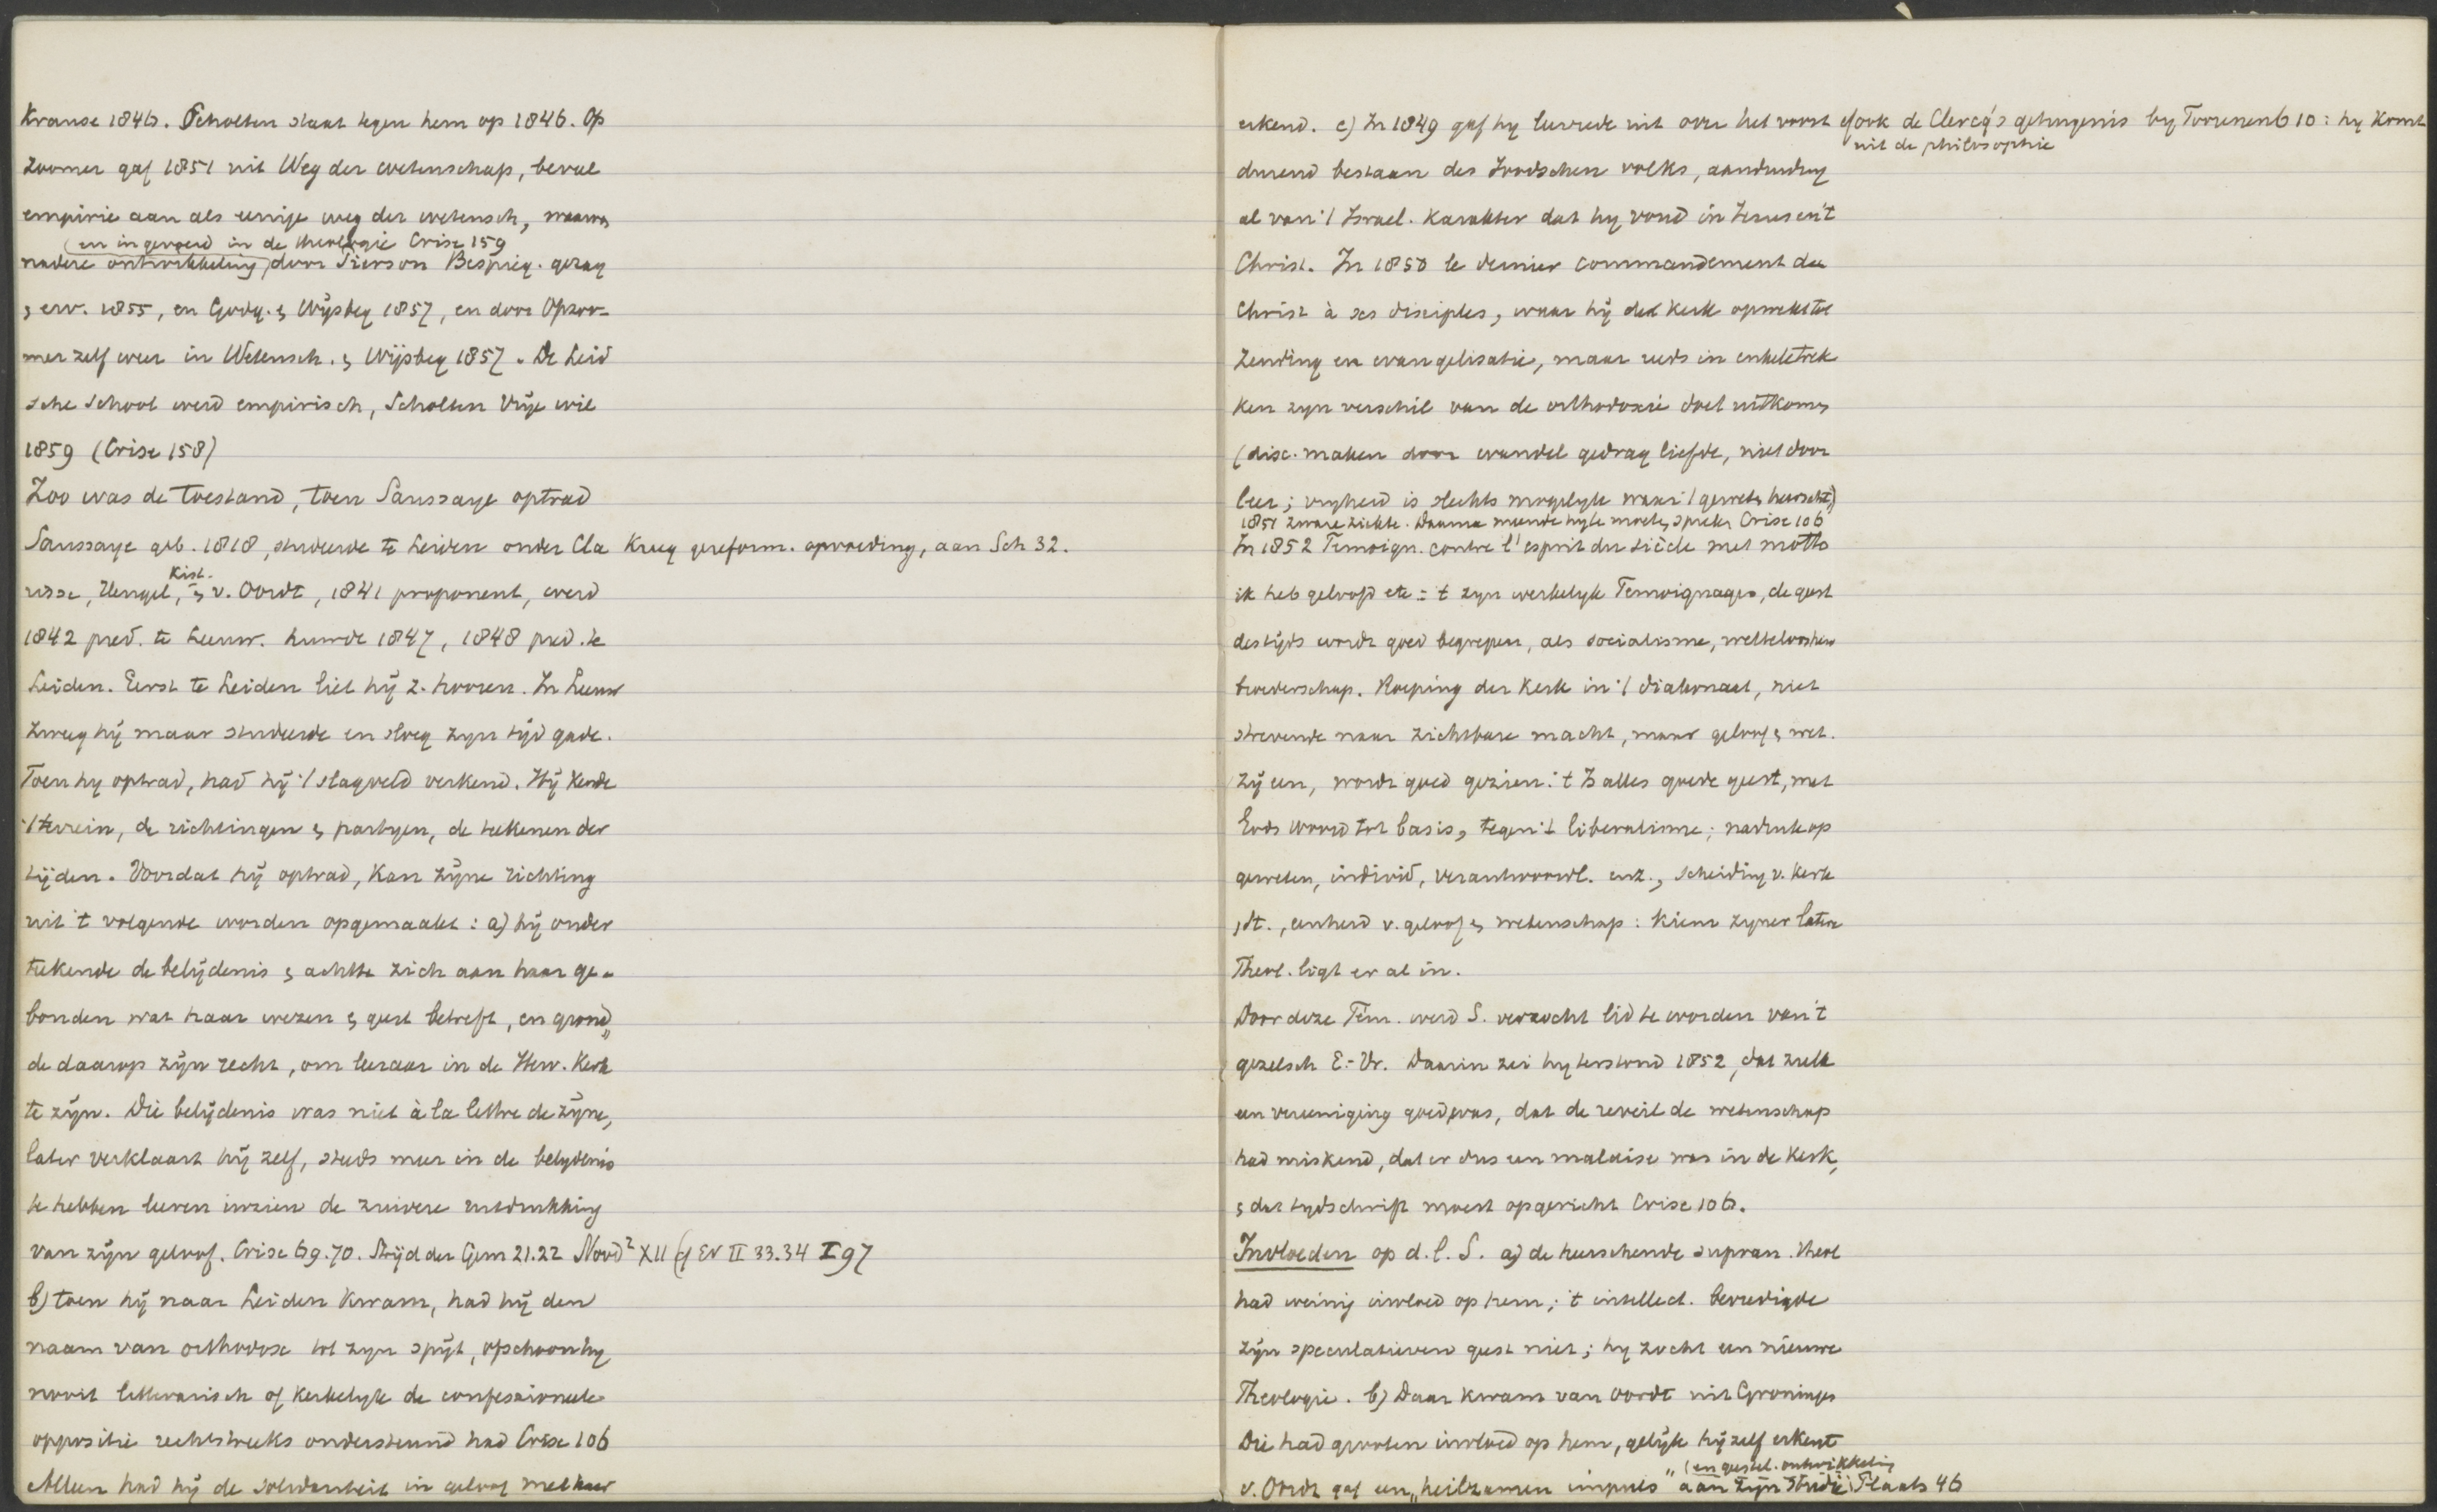 Krause 1846. Scholten staat tegen hem op 1846. Op
zoomer gaf 1851 uit Weg der wetenschap, beval
empirie aan als eenige weg der wetensch,
(en ingevoerd in de theologie Crise 159
nadere ontwikkeling, door Pierson Bespieg. gezag
& erv. 1855, en Godg. & Wijsbeg 1857, en door Opzoo-
mer zelf weer in Wetensch. & Wijsbeg 1857. De Leid
sche school werd empirisch, Scholten Vrije wil
1859 (Crise 158)
Zoo was de toestand, toen Saussaye optrad
Saussaye geb. 1818, studeerde te Leiden onder Cla Kreeg gereform. opvoeding, aan Sch 32.
Kist.
risse, Hengel, & v. Oordt, 1841 proponent, werd
1842 pred. te Leeuw. huwde 1847, 1848 pred. te
Leiden. Eerst te Leiden liet hij z. hooren. In Leeuw
zweeg hij maar studeerde en sloeg zyn tijd gade.
Toen hy optrad, had hij 't slagveld verkend. Hij kende
't terrein, de richtingen & partyen, de teekenen der
tijden. Voordat hij optrad, kan zijne richting
uit 't volgende worden opgemaakt: a) hij onder
teekende de belijdenis & achtte zich aan haar ge-
bonden wat haar wezen & geest betreft, en grond
de daarop zijn recht, om leeraar in de Herv. Kerk
te zijn. Die belijdenis was niet à la lettre de zijne,
later verklaart hij zelf, steeds meer in de belydenis
te hebben leeren inzien de zuivere uitdrukking
van zijn geloof. Crise 69.70. Strijd der Gem 21.22 Nood² XII cf EV II 33.34 I 97
b) toen hij naar Leiden kwam, had hij den
naam van orthodox tot zyn spijt, ofschoon hy
nooit litterarisch of kerkelyk de confessioneele
oppositie rechtstreeks ondersteund had Crise 106
Alleen had hij de solidariteit in geloof met haar
erkend. c) In 1849 gaf hy leerrede uit over het voort cf ook de Clercq's getuigenis by Toorenenb 10: hy komt
uit de philosophie
durend bestaan des Joodschen volks, aanduiding
al van 't Israel. karakter dat hy vond in Jezus en 't
Christ. In 1850 le dernier commandement du
Christ à ses disciples, waar hij de kerk opwekt tot
zending en evangelisatie, maar reeds in enkele trek
ken zyn verschil van de orthodoxie doet uitkomen
(disc. maken door wandel gedrag liefde, niet door
leer; vryheid is slechts mogelyk waar 't geweten heerscht)
1851 zware ziekte. Daarna meende hy te moeten spreken Crise 106
In 1852 Temoign. contre l'esprit du siècle met motto
ik heb geloofd etc: 't zyn werkelyk Temoignages, de geest
des tijds wordt goed begrepen, als socialisme,
broederschap. Roeping der Kerk in 't diakonaat, niet
strevende naar zichtbare macht, maar geloof & wet.
zij een, wordt goed gezien: 't Is alles goede geest, met
Gods woord tot basis, tegen 't liberalisme; nadruk op
geweten, individ, verantwoordl. enz., scheiding v. Kerk
& St., eenheid v. geloof & wetenschap: Kiem zyner latere
Theol. ligt er al in.
Door deze Tém. werd S. verzocht lid te worden van 't
gezelsch E.-Vr. Daarin zei hy terstond 1852, dat zulk
een vereeniging goed was, dat de reveil de wetenschap
had miskend, dat er dus een malaise was in de Kerk,
& dat tydschrift moest opgericht Crise 106.
Invloeden op d.l.S. a) de heerschende supran. theol
had weinig invloed op hem; 't intellect. bevredigde
zijn speculatieven geest niet; hy zocht een nieuwe
Theologie. b) Daar kwam van Oordt uit Groningen
Die had grooten invloed op hem, gelijk hij zelf erkent
(en geestel. ontwikkeling
v. Oordt gaf een "heilzamen impuls" aan zyn studie Plaats 46